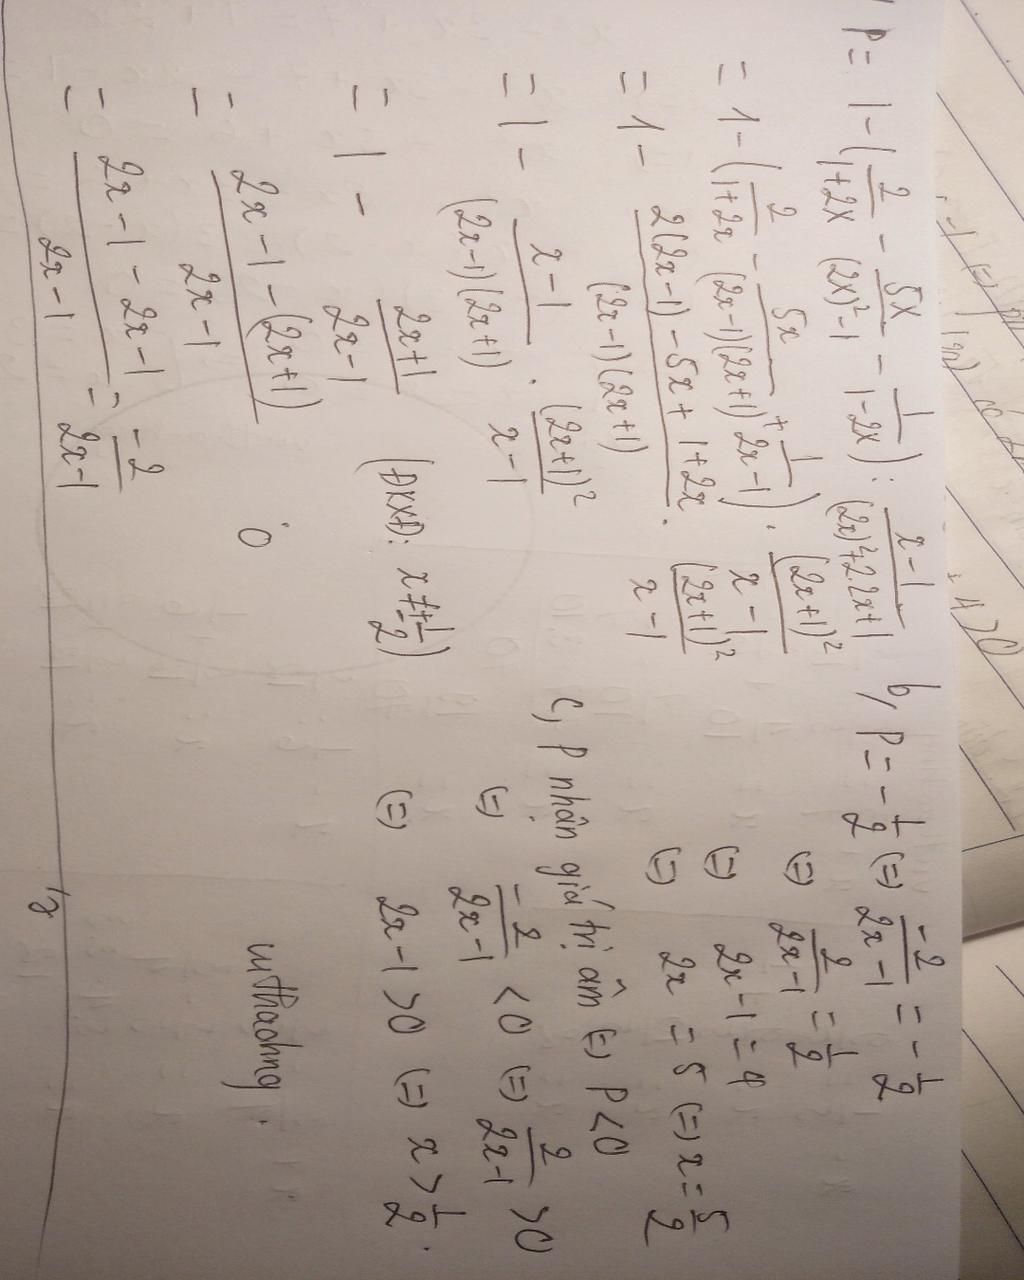 P = 1 - (2/(1+2x) - 5x/((2x)²-1) - 1/(1-2x)) : (x-1)/((2x)²+2.2x+1)
= 1 - (2/(1+2x) - 5x/((2x-1)(2x+1)) + 1/(2x-1)) . (2x+1)²/(x-1)
= 1 - (2(2x-1) - 5x + 1 + 2x)/((2x-1)(2x+1)) . (2x+1)²/(x-1)
= 1 - (x-1)/((2x-1)(2x+1)) . (2x+1)²/(x-1)
= 1 - (2x+1)/(2x-1) (ĐKXĐ: x ≠ ±1/2)
= (2x-1-(2x+1))/(2x-1)
= (2x-1-2x-1)/(2x-1) = -2/(2x-1)
b, P = -1/2 (=) -2/(2x-1) = -1/2
(=) 2/(2x-1) = 1/2
(=) 2x-1 = 4
(=) 2x = 5 (=) x = 5/2
c, P nhận giá trị âm (=) P < 0
(=) -2/(2x-1) < 0 (=) 2/(2x-1) > 0
(=) 2x-1 > 0 (=) x > 1/2.